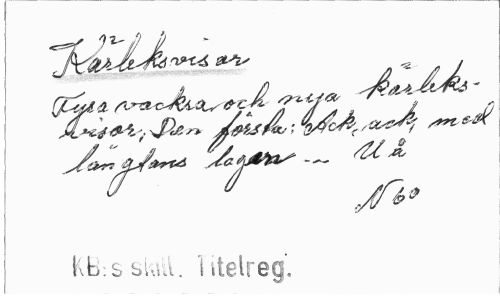 Kärleksvisor
Fyra vackra och nya kärleks-
visor; Den första: Ack, ack, med
längtans lågor --- U å
N 60
KB:s skill. Titelreg.